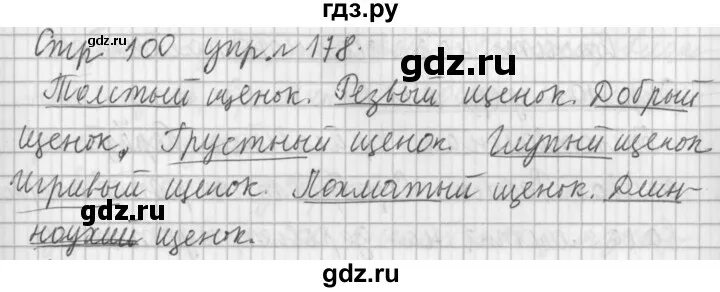 гдз.ру
Стр 100 упр.л 178.
gdz.ru
gdz.ru
Толстый щенок. Резвый щенок. Добрый
щенок. Грустный щенок. Глупый щенок
Игривый щенок. Лохматый щенок. Длин-
gdz.ru
ноухий щенок.
gdz.ru